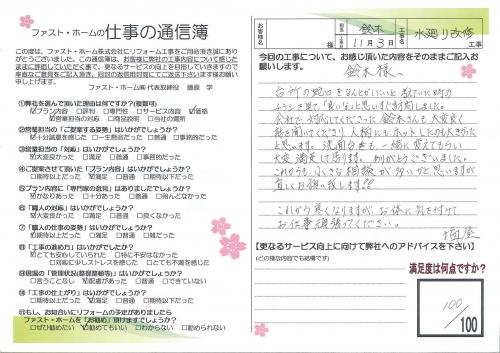 ファスト・ホームの仕事の通信簿
この度は、ファスト・ホーム株式会社にリフォーム工事をご用命頂き誠にあり
がとうございました。この通信簿は、お客様に弊社の工事内容について感じた
ままに評価していただく事で、更なるサービスの向上を目指していきますので
率直なご意見をご記入頂き、同封の返信用封筒にてご送下さいます様お願い
申し上げます。
ファスト・ホーム㈱代表取締役 藤原 学
①弊社を選んで頂いた理由は何ですか?(複数可)
プラン内容 □評判 □専門性 □サービス内容 価格
営業担当の対応 □商品説明 □会社の場所
②営業担当の「ご提案する姿勢」はいかがでしょうか?
十分誠意を感じた □一生懸命だった □普通 □事務的だった
③営業担当の「対応」はいかがでしょうか?
大変良かった □満足 □普通 □事務的だった
④ご提案させて頂いた「プラン内容」はいかがでしょうか?
期待以上だった 満足 □普通 □期待以下だった
⑤プラン内容に「専門家の意見」はありましたでしょうか?
かなりあった □十分あった □普通 □殆んどなかった
⑥「職人の対応」はいかがでしょうか?
大変良かった □満足 □普通 □良くなかった
⑦「職人の仕事の姿勢」はいかがでしょうか?
期待以上だった □満足 □普通 □雑だった
⑧「工事の進め方」はいかがでしたか?
とても安心していられた □特に不安はなかった
□対応に少しストレスを感じた □とても不満を感じた
⑨現場の「管理状況(整理整頓等)」はいかがでしょうか?
□言うことなし 配慮があった □普通 □悪かった
⑩「工事の仕上がり」はいかがでしょうか?
□期待以上だった 満足 □普通 □期待以下だった
⑪もし、お知合いにリフォームの予定がありましたら
ファスト・ホームを「お勧め」頂けますでしょうか?
□ぜひ勧めたい 勧めてもいい □わからない □勧められない
お客様名 様
担当 鈴木
工事 11月3日
工事名 水廻り改修
今回の工事について、お感じ頂いた内容をそのままご記入お
願いします。
鈴木様へ
台所の蛇口をなんとかしたいと思っていた時の
チラシを見て「良いな」と思いすぐ訪問しました。
会社で対応してくださった鈴木さんも大変良く
話を聞いてくださり人柄にもホットしたのも大きかった
と思います。洗面台も一緒に変えてもらい
大変満足して居ります。ありがとうございました。
これからも小さな相談が多いかと思いますが
宜しくお願い致します!!
これから寒くなりますが、お体に気を付けて
お仕事頑張ってください。
【更なるサービス向上に向けて弊社へのアドバイスを下さい】
(どの様な内容でも結構です)
満足度は何点ですか?
100/100